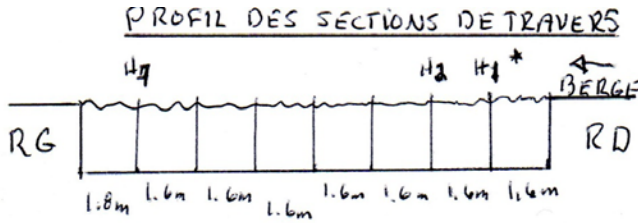 PROFIL DES SECTIONS DE TRAVERS
H7 H2 H1 *
BERGE
RG RD
1.8m 1.6m 1.6m 1.6m 1.6m 1.6m 1.6m 1,6m